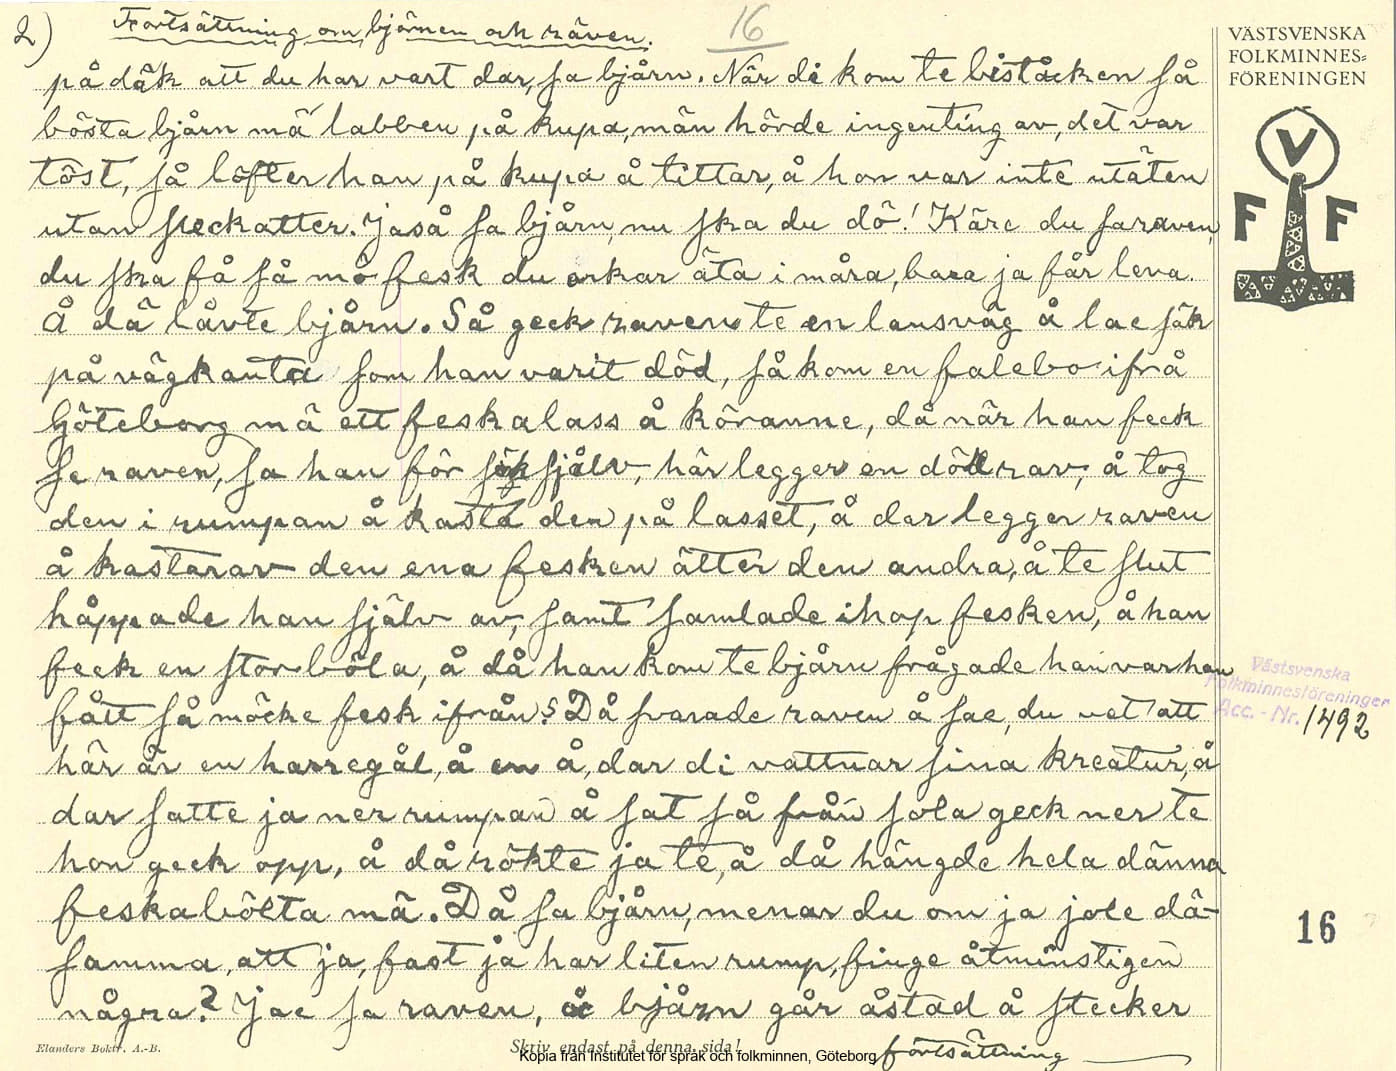 2) Fortsättning om björnen och räven.
16
på däk att du har vart dar, sa bjårn. När di kom te biståcken så
bösta bjårn mä labben på kupa, män hörde ingenting av, det var
töst, så löfter han på kupa å tittar, å hon var inte utäten
utan steckatter. Jaså sa bjårn, nu ska du dö! Käre du sa raven,
du ska få så mö fesk du orkar äta i måra, bara ja får leva.
Å dä låvte bjårn. Så geck raven te en lansväg å lae säk
på vägkanta som han varit död, så kom en falebo ifrå
Göteborg mä ett feskalass å köranne, då når han feck
se raven, sa han för sök själv, här legger en död rav, å tog
den i rumpan å kasta den på lasset, å dar legger raven
å kastar av den ena fesken ätter den andra, å te slut
håppade han själv av, samt samlade ihop fesken, å han
feck en stor böla, å då han kom te bjårn frågade han var han
fått så möcke fesk ifrån? Då svarade raven å sae, du vet att
här är en harregål, å en å, dar di vattnar sina kreatur, å
dar satte ja ner rumpan å sat så från sola geck ner te
hon geck opp, å då rökte ja te, å då hängde hela dänna
feskabölta mä. Då sa bjårn, menar du om ja jole dä-
samma, att ja, fast ja har liten rump, finge åtminstigen
några? Jae sa raven, å bjårn går åstad å stecker
fortsättning
Elanders Boktr. A.-B.
Skriv endast på denna sida!
Kopia från Institutet för språk och folkminnen, Göteborg
VÄSTSVENSKA
FOLKMINNES=
FÖRENINGEN
V
F F
Västsvenska
Folkminnesföreningen
Acc. - Nr. 1492
16